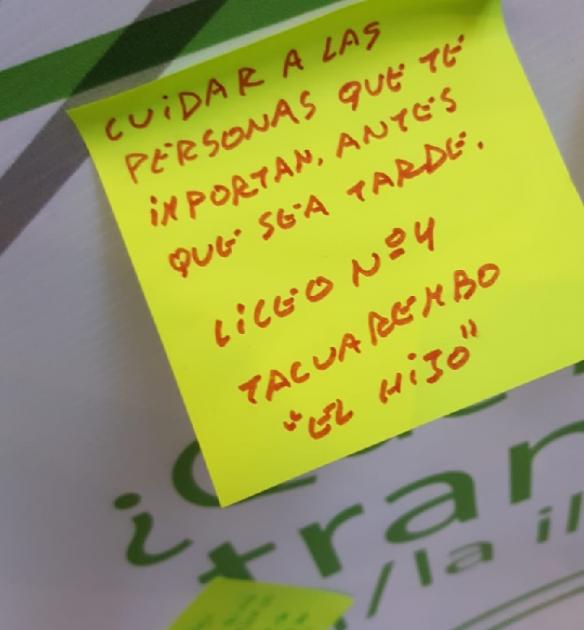 CUIDAR A LAS
PERSONAS QUE TE
IMPORTAN, ANTES
QUE SEA TARDE.
LICEO Nº4
TACUAREMBO
"EL HIJO"
/la